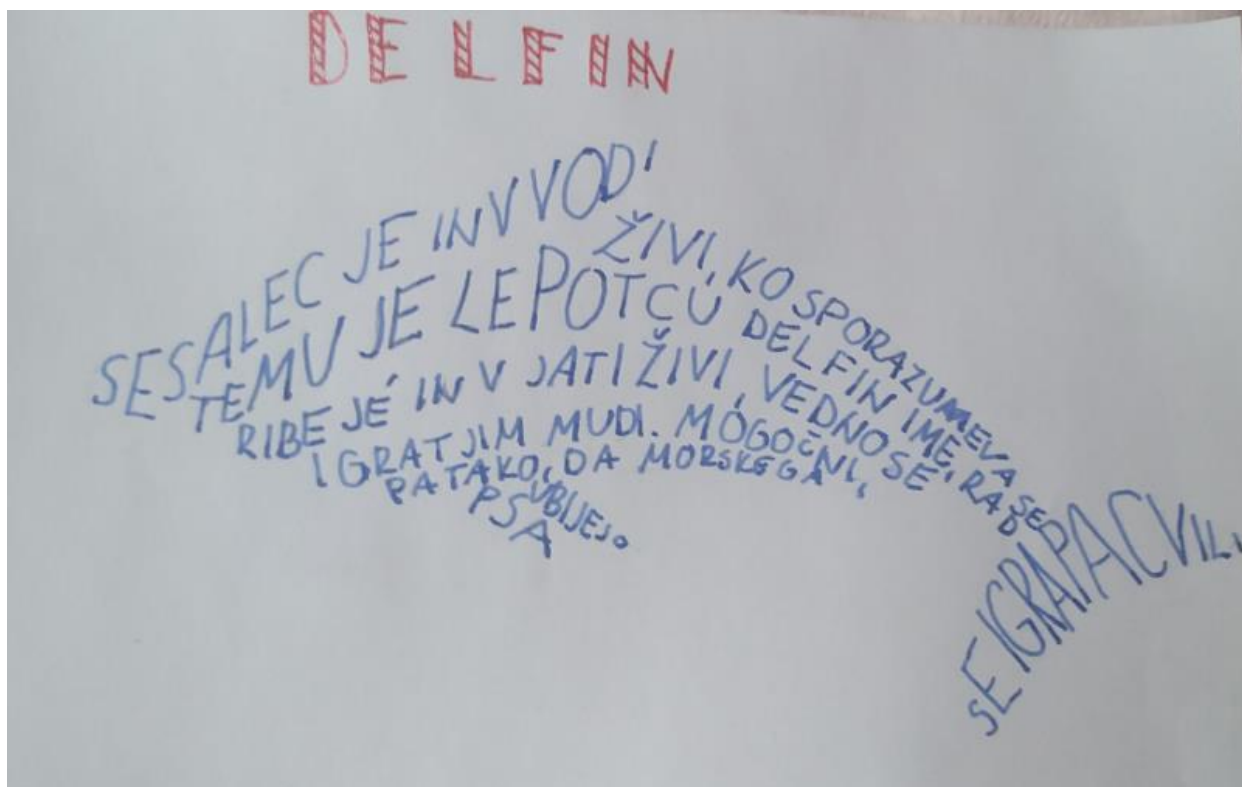 DELFIN
SESALEC JE IN V VODI
ŽIVI, KO SPORAZUMEVA SE
CVILI,
TEMU JE LEPOTCU DELFIN IME, RAD
SE IGRA PA
RIBE JÉ IN V JATI ŽIVI, VEDNO SE
IGRAT JIM MUDI. MOGOČNI,
PA TAKO, DA MORSKEGA
PSA UBIJEJO